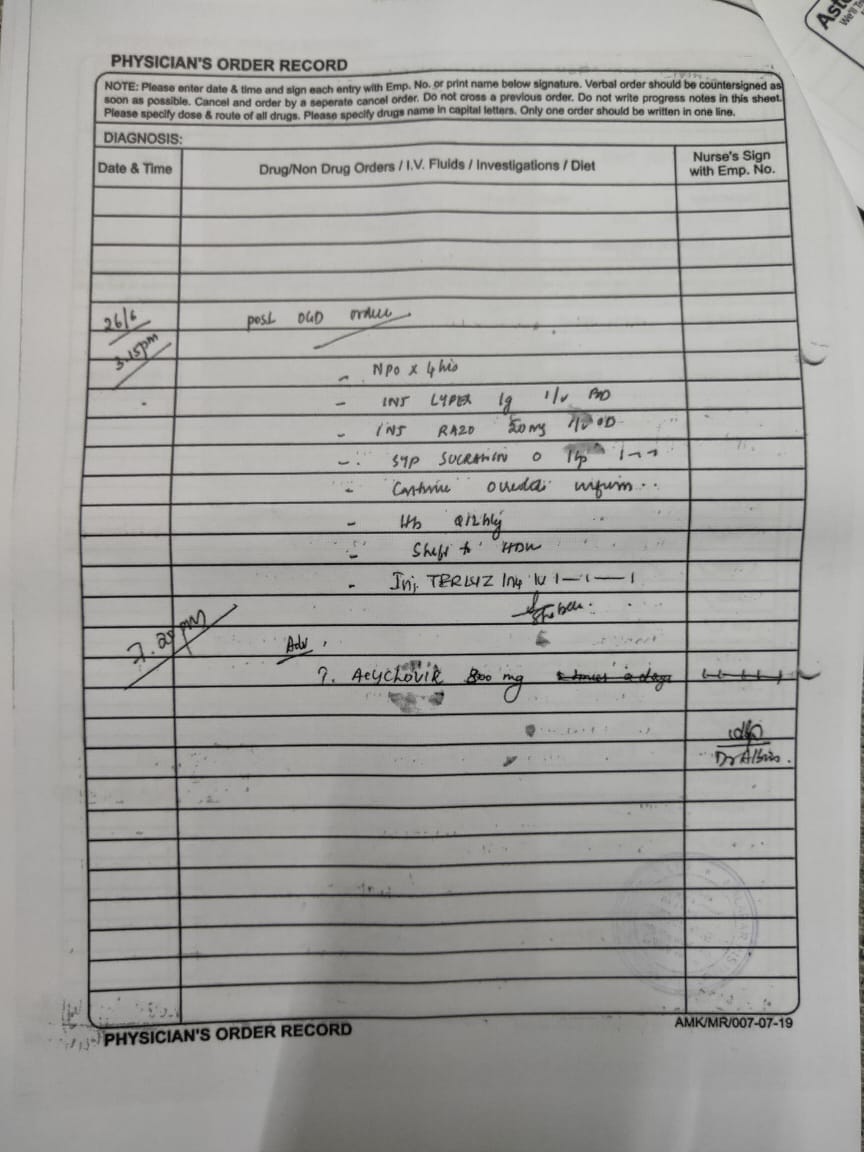 Ast
We'll Te
PHYSICIAN'S ORDER RECORD
NOTE: Please enter date & time and sign each entry with Emp. No. or print name below signature. Verbal order should be countersigned as
soon as possible. Cancel and order by a seperate cancel order. Do not cross a previous order. Do not write progress notes in this sheet.
Please specify dose & route of all drugs. Please specify drugs name in capital letters. Only one order should be written in one line.
DIAGNOSIS:
Date & Time Drug/Non Drug Orders / I.V. Fluids / Investigations / Diet Nurse's Sign
with Emp. No.
26/6 post OGD orders
3.15pm
- NPO x 4 hrs
- INJ 1g I/V BD
- INJ RAZO I/V OD
- SYP O
-
- Hb Q12hly
- Shift to HDU
- Inj. IV 1-1-1
7.20 pm
Adv.
ACYCLOVIR 800 mg
Dr
PHYSICIAN'S ORDER RECORD
AMK/MR/007-07-19